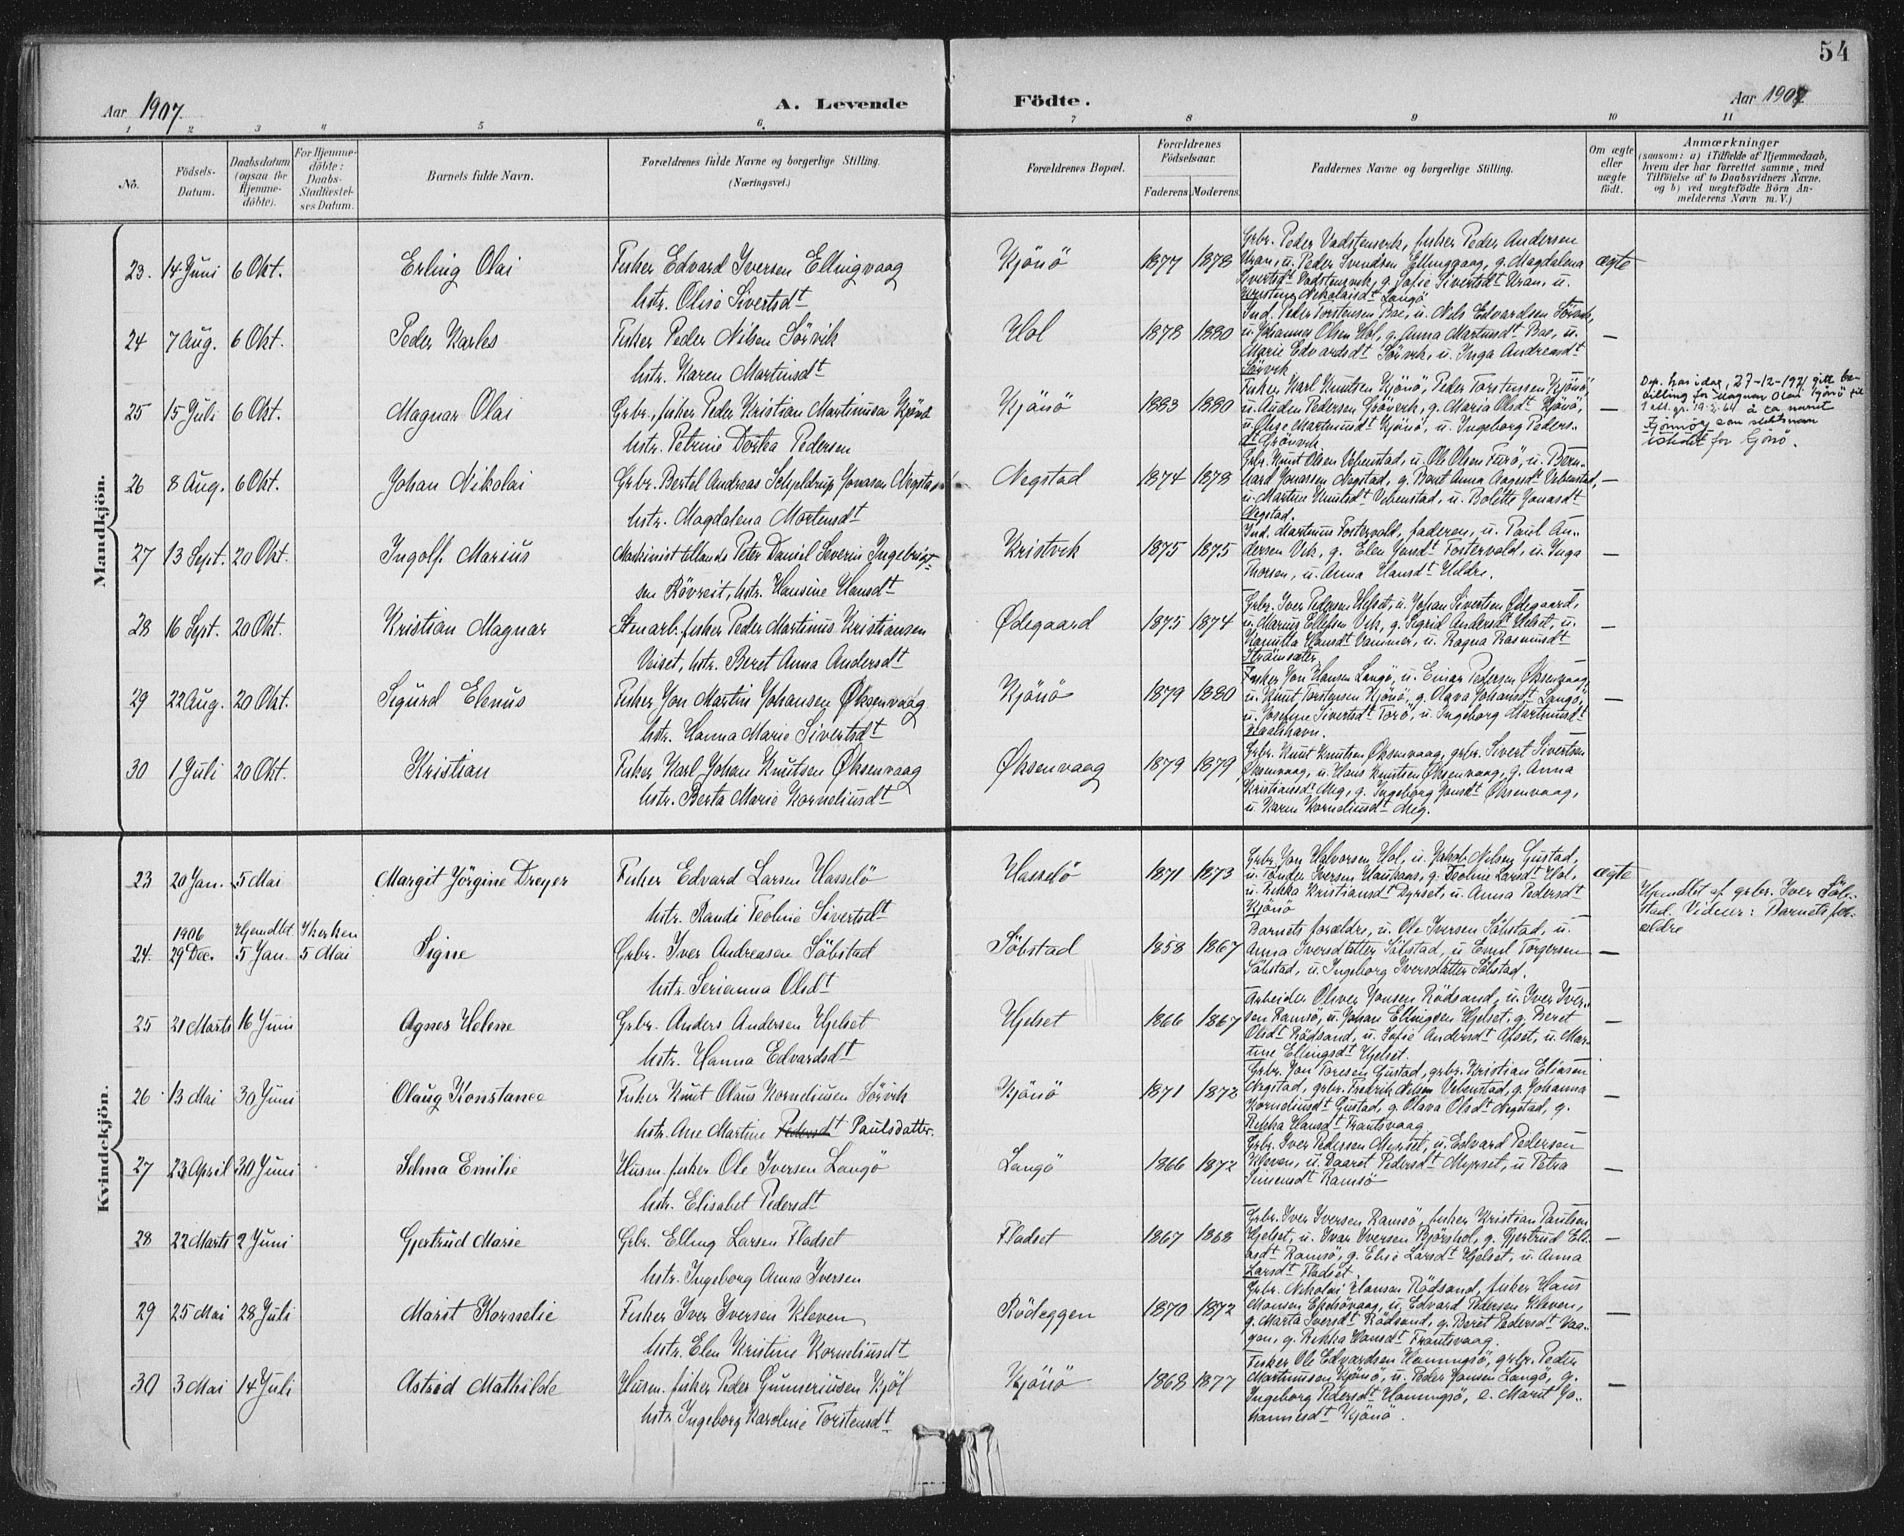 54
Aar 1907.
A. Levende Födte.
Aar 1907
1 2 3 4 5 6. 7 8 9 10 11
No.
Födsels-Datum.
Daabsdatum (ogsaa for Hjemme-döbte).
For Hjemme-döbte: Daabs-Stadfæstel-ses Datum.
Barnets fulde Navn.
Forældrenes fulde Navne og borgerlige Stilling. (Næringsvei.)
Forældrenes Bopæl.
Forældrenes Födselsaar.
Faderens Moderens.
Faddernes Navne og borgerlige Stilling.
Om ægte eller uægte födt.
Anmærkninger
(saasom: a) i Tilfælde af Hjemmedaab, hvem der har forrettet samme, med Tilföielse af to Daabsvidners Navne, og b) ved uægtefödte Börn An-melderens Navn m. V.)
Mandkjön.
23. 14 Juni 6 Okt. Erling Olai
Fisker Edvard Iversen Ellingvaag
hstr. Olise Sivertsdt
Kjönö 1877 1878
Grbr. Peder Vadstensvik, fisker Peder Andersen
Uran, u. Peder Svendsen Ellingvaag, g. Magdalena
Sivertsdt Vadstensvik, g. Sofie Sivertsdt Uran, u.
Kristine Nikolaisdt Langö
ægte
24 7 Aug. 6 Okt. Peder Karles
Fisker Peder Nilsen Sörvik
hstr. Karen Martinsdt
Hol 1878 1880
Ind. Peder Torstensen Bae, u. Nils Edvardsen Sörvik,
u. Johannes Olsen Hol, g. Anna Martinsdt Bae, u.
Marie Edvardsdt Sörvik, u. Inga Andreasdt
Sörvik
—
25 15 Juli 6 Okt. Magnar Olai
Grbr., fisker Peder Kristian Martinusen Kjönö
hstr. Petrine Dortea Pedersen
Kjönö 1883 1880
Fisker Karl Knutsen Kjönö, Peder Torstensen Kjönö,
u. Auden Pedersen Grönvik, g. Maria Olsdt Kjönö,
u. Olise Martinusdt Kjönö, u. Ingeborg Peders-
dt Grönvik
—
Dep. har idag, 27-12-1921 gitt be-
villing for Magnar Olai Kjönö til
å ta navnet
som slektsnavn
istedet for Kjönö.
26 8 Aug. 6 Okt. Johan Nikolai
Grbr. Bertel Andreas Schjeldrup Jonasen Negstad
hstr. Magdalena Mortensdt
Negstad 1874 1878
Grbr. Knut Olsen Vebenstad, u. Ole Olsen Furö, u. Bern-
hard Jonassen Negstad, g. Berit Anna Aagesdt Vebenstad,
u. Martine Knutsdt Vebenstad, u. Bolette Jonasdt
Negstad.
—
27 13 Sept. 20 Okt. Ingolf Marius
Maskinist tillands Peter Daniel Severin Ingebrigt-
sen Rövreit, hstr. Hansine Hansdt
Kristvik 1875 1875
Ind. Martinus Fostervold, faderen, u. Paul An-
dersen Vik, g. Elen Jensdt Fostervold, u. Inga
Thorsen, u. Anna Hansdt Hildre.
—
28 16 Sept. 20 Okt. Kristian Magnar
Stenarb. fisker Peder Martinus Kristiansen
Veiset, hstr. Beret Anna Andersdt
Ødegaard 1875 1874
Grbr. Iver Pedersen Helset, u. Johan Sivertsen Ødegaard,
u. Marius Ellefsen Vik, g. Sigrid Andersdt Helset, u.
Hansdt u. Ragna Rasmusdt
Strømsæter
—
29 22 Aug. 20 Okt. Sigurd Elenus
Fisker Jon Martin Johansen Øksenvaag
hstr. Hanna Marie Sivertsdt
Kjönö 1879 1880
Fisker Jon Hansen Langö, u. Einar Pedersen Øksenvaag,
u. Knut Torstensen Kjönö, g. Olava Johansdt Langö,
u. Josefine Sivertsdt Torö, u. Ingeborg Martinusdt

—
30 1 Juli 20 Okt. Kristian
Fisker Karl Johan Knutsen Øksenvaag
hstr. Berta Marie Korneliusdt
Øksenvaag 1879 1879
Grbr. Knut Knutsen Øksenvaag, grbr. Sivert Sivertsen
Øksenvaag, u. Hans Knutsen Øksenvaag, g. Anna
Kristiansdt Meg, g. Ingeborg Jonsdt Øksenvaag,
u. Karen Korneliusdt Meg.
—
Kvindekjön.
23 20 Jan. 5 Mai Margit Jörgine Dreyer
Fisker Edvard Larsen Hasselö
hstr. Randi Teoline Sivertsdt
Hasselö 1871 1873
Grbr. Jon Halvorsen Hol, u. Jakob Nilsen Gustad,
u. Iversen g. Teoline Larsdt Hol,
u. Rikka Kristiansdt Dyrset, u. Anna Pedersdt
Kjönö
ægte
24. 1906 29 Dec. Hjemdbt. 5 Jan. I kirken 5 Mai Signe
Grbr. Iver Andreasen Söbstad
hstr. Serianna Olsdt
Söbstad 1858 1867
Barnets forældre, u. Ole Iversen Söbstad, u.
Anna Iversdatter Söbstad, u. Emil Torgersen
Söbstad, u. Ingeborg Iversdatter Söbstad.
—
Hjemdbt af grbr. Iver Söb-
stad. Vidner: Barnets for-
ældre
25 21 Marts 16 Juni Agnes Helene
Grbr. Anders Andersen Hjelset
hstr. Hanna Edvardsdt
Hjelset 1866 1867
Arbeider Oliver Jonsen Rödsand, u. Iver Iver-
sen Ramsö, u. Johan Ellingsen Hjelset, g. Beret
Olsdt Rödsand, u. Sofie Andersdt Afset, u. Mar-
tine Ellingsdt Hjelset.
—
26 13 Mai 30 Juni Olaug Konstance
Fisker Knut Olaus Korneliusen Sörvik
hstr. Ane Martine Pedersdt Paulsdatter.
Kjönö 1871 1872
Grbr. Jon Toresen Gustad, grbr. Kristian Eliasen
Negstad, grbr. Fredrik Nilsen Vebenstad, g. Johanna
Korneliusdt Gustad, g. Olava Olsdt Negstad, g.
Rikka Hansdt Frantsvaag
27 23 April 30 Juni Selma Emilie
Husm. fisker Ole Iversen Langö
hstr. Elisabet Pedersdt
Langö 1866 1872
Grbr. Iver Pedersen Myrset, u. Edvard Pedersen
Kleven, u. Daaret Pedersdt Myrset, u. Petra
Jensensdt Ramsö
—
28 22 Marts 2 Juni Gjertrud Marie
Grbr. Elling Larsen Fladset
hstr. Ingeborg Anna Iversen
Fladset 1867 1868
Grbr. Iver Iversen Ramsö, fisker Kristian Paulsen
Hjelset, u. Ivar Iversen Björshol, g. Gjertrud Eli-
asdt Ramsö, g. Elsie Larsdt Hjelset, u. Anna
Larsdt Fladset
—
29 25 Mai 28 Juli Marit Kornelie
Fisker Iver Iversen Kleven
hstr. Elen Kristine Korneliusdt
Rödeggen 1870 1872
Grbr. Nikolai Hansen Rödsand, fisker Hans
Monsen u. Edvard Pedersen Kleven,
g. Marta Iversdt Rödsand, g. Beret Pedersdt Vaa-
gen, g. Rikka Hansdt Frantsvaag.
—
30 3 Mai 14 Juli Astrid Mathilde
Husm. fisker Peder Gunneriusen Kjöl
hstr. Ingeborg Karoline Torstensdt
Kjönö 1868 1877
Fisker Ole Edvardsen Honningsö, grbr. Peder
Martinusen Kjönö, u. Peder Jonsen Langö, g.
Ingeborg Pedersdt Honningsö, e. Marit Jo-
hannesdt Kjönö.
—